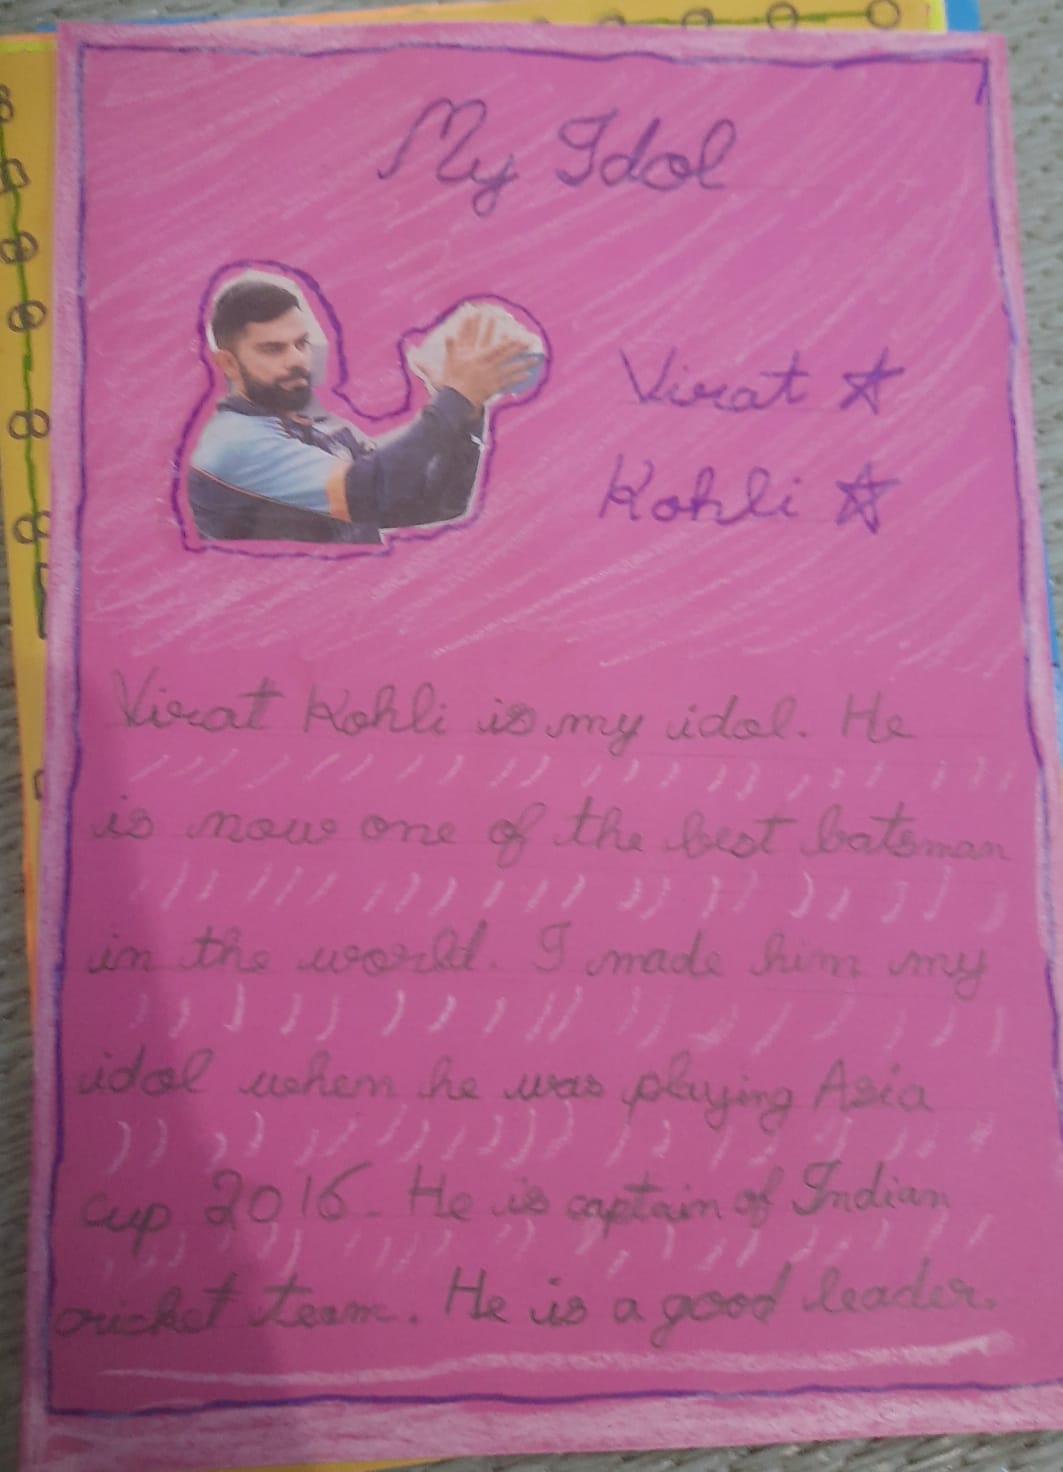 My Idol
Virat ☆
Kohli ☆
Virat Kohli is my idol. He
is now one of the best batsman
in the world. I made him my
idol when he was playing Asia
cup 2016. He is captain of Indian
cricket team. He is a good leader.